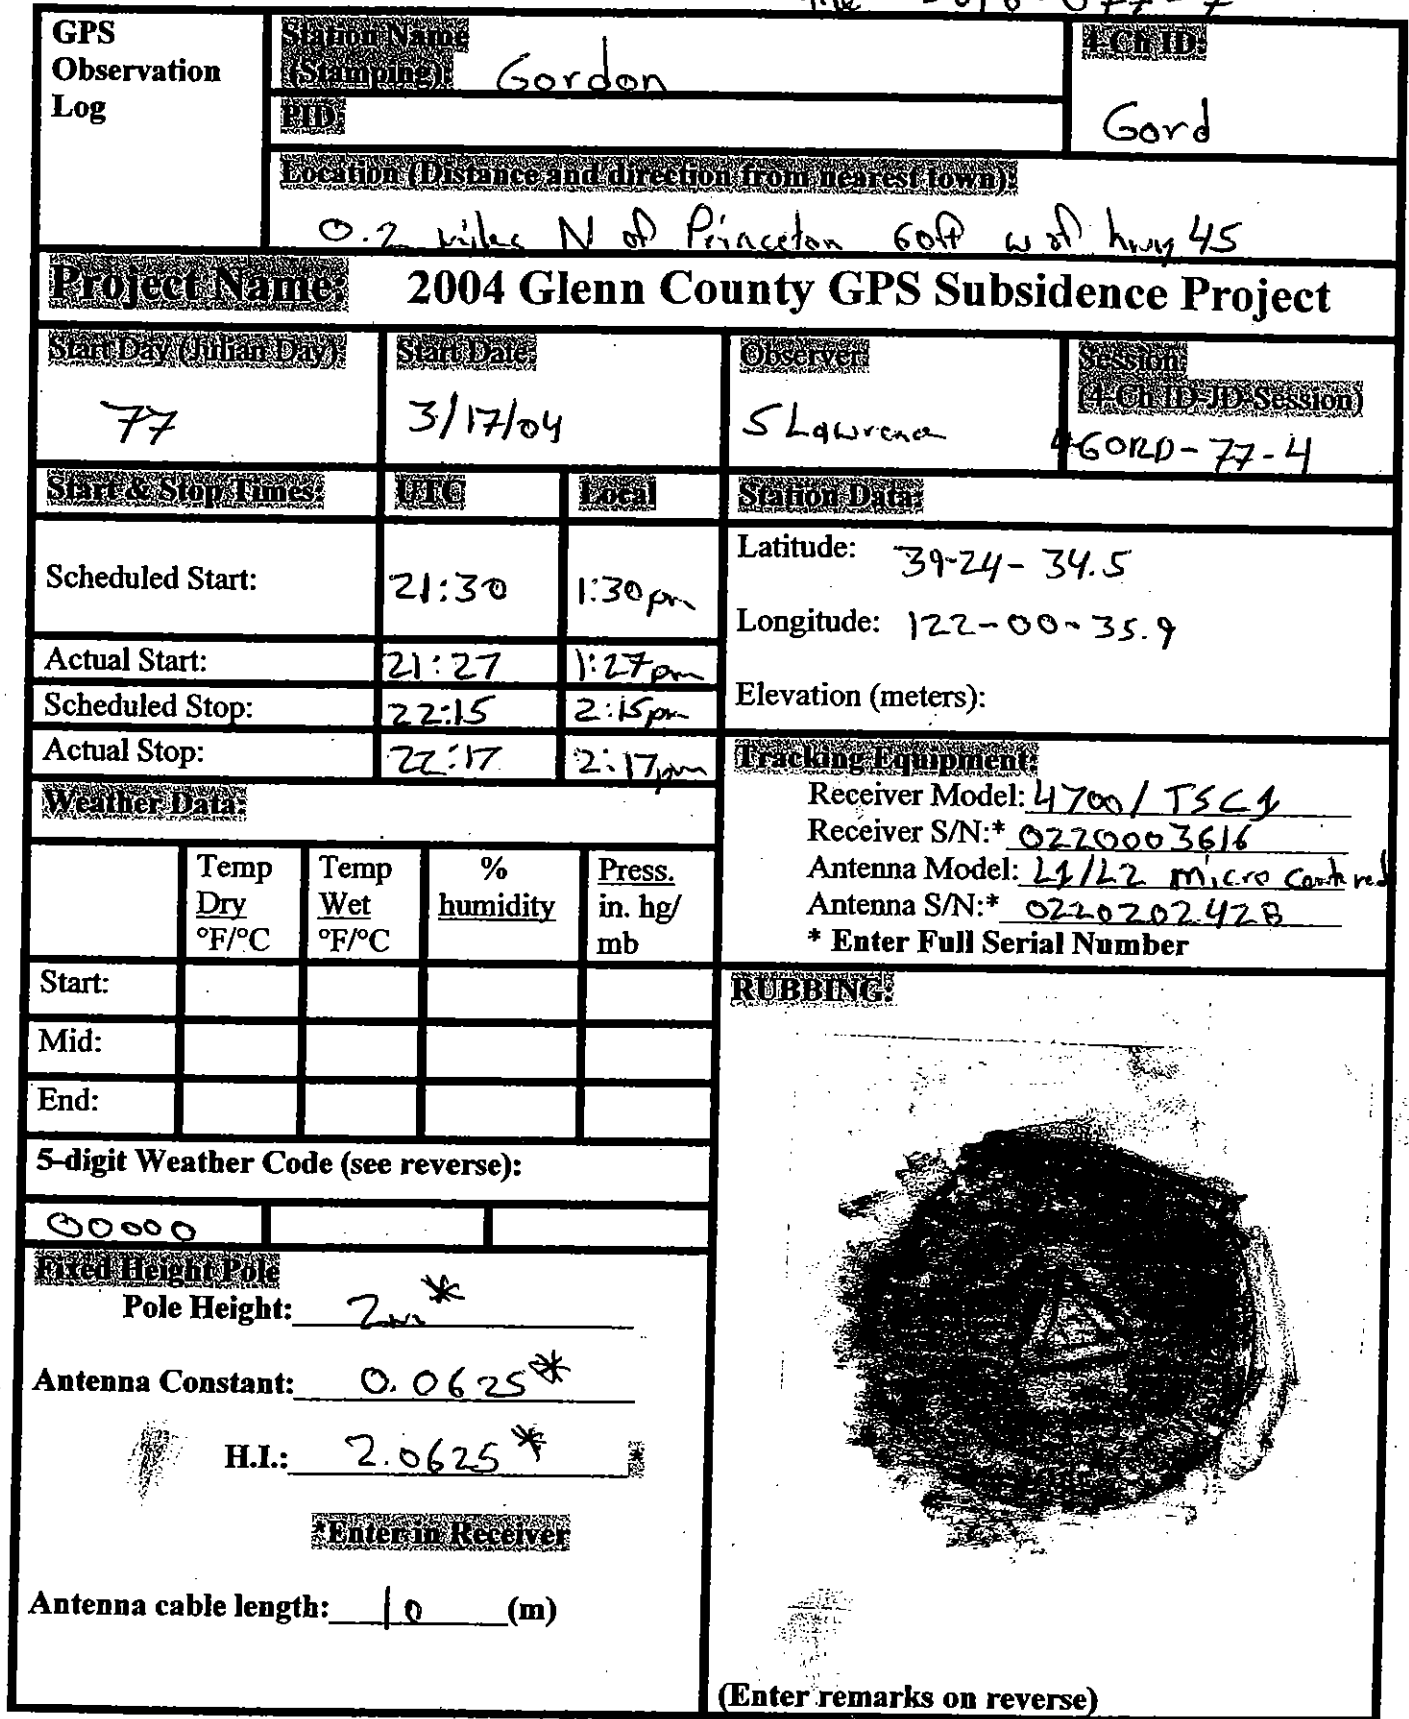 GPS Observation Log
Station Name (Stamping): Gordon
4-Ch ID: Gord
PID:
Location (Distance and direction from nearest town):
0.2 miles N of Princeton 60ft w of hwy 45
Project Name: 2004 Glenn County GPS Subsidence Project
Start Day (Julian Day): 77
Start Date: 3/17/04
Observer: S Lawrence
Session: (4-Ch ID-JD-Session) GORD-77-4
Start & Stop Times: UTC Local
Scheduled Start: 21:30 1:30pm
Actual Start: 21:27 1:27pm
Scheduled Stop: 22:15 2:15pm
Actual Stop: 22:17 2:17pm
Station Data:
Latitude: 39-24-34.5
Longitude: 122-00-35.9
Elevation (meters):
Tracking Equipment:
Receiver Model: 4700/TSC1
Receiver S/N:* 0220003616
Antenna Model: L1/L2 micro
Antenna S/N:* 0220202428
* Enter Full Serial Number
Weather Data:
Temp Dry °F/°C
Temp Wet °F/°C
% humidity
Press. in. hg/ mb
Start:
Mid:
End:
5-digit Weather Code (see reverse):
00000
Fixed Height Pole
Pole Height: 2m*
Antenna Constant: 0.0625*
H.I.: 2.0625* *
*Enter in Receiver
Antenna cable length: 10 (m)
RUBBING:
(Enter remarks on reverse)